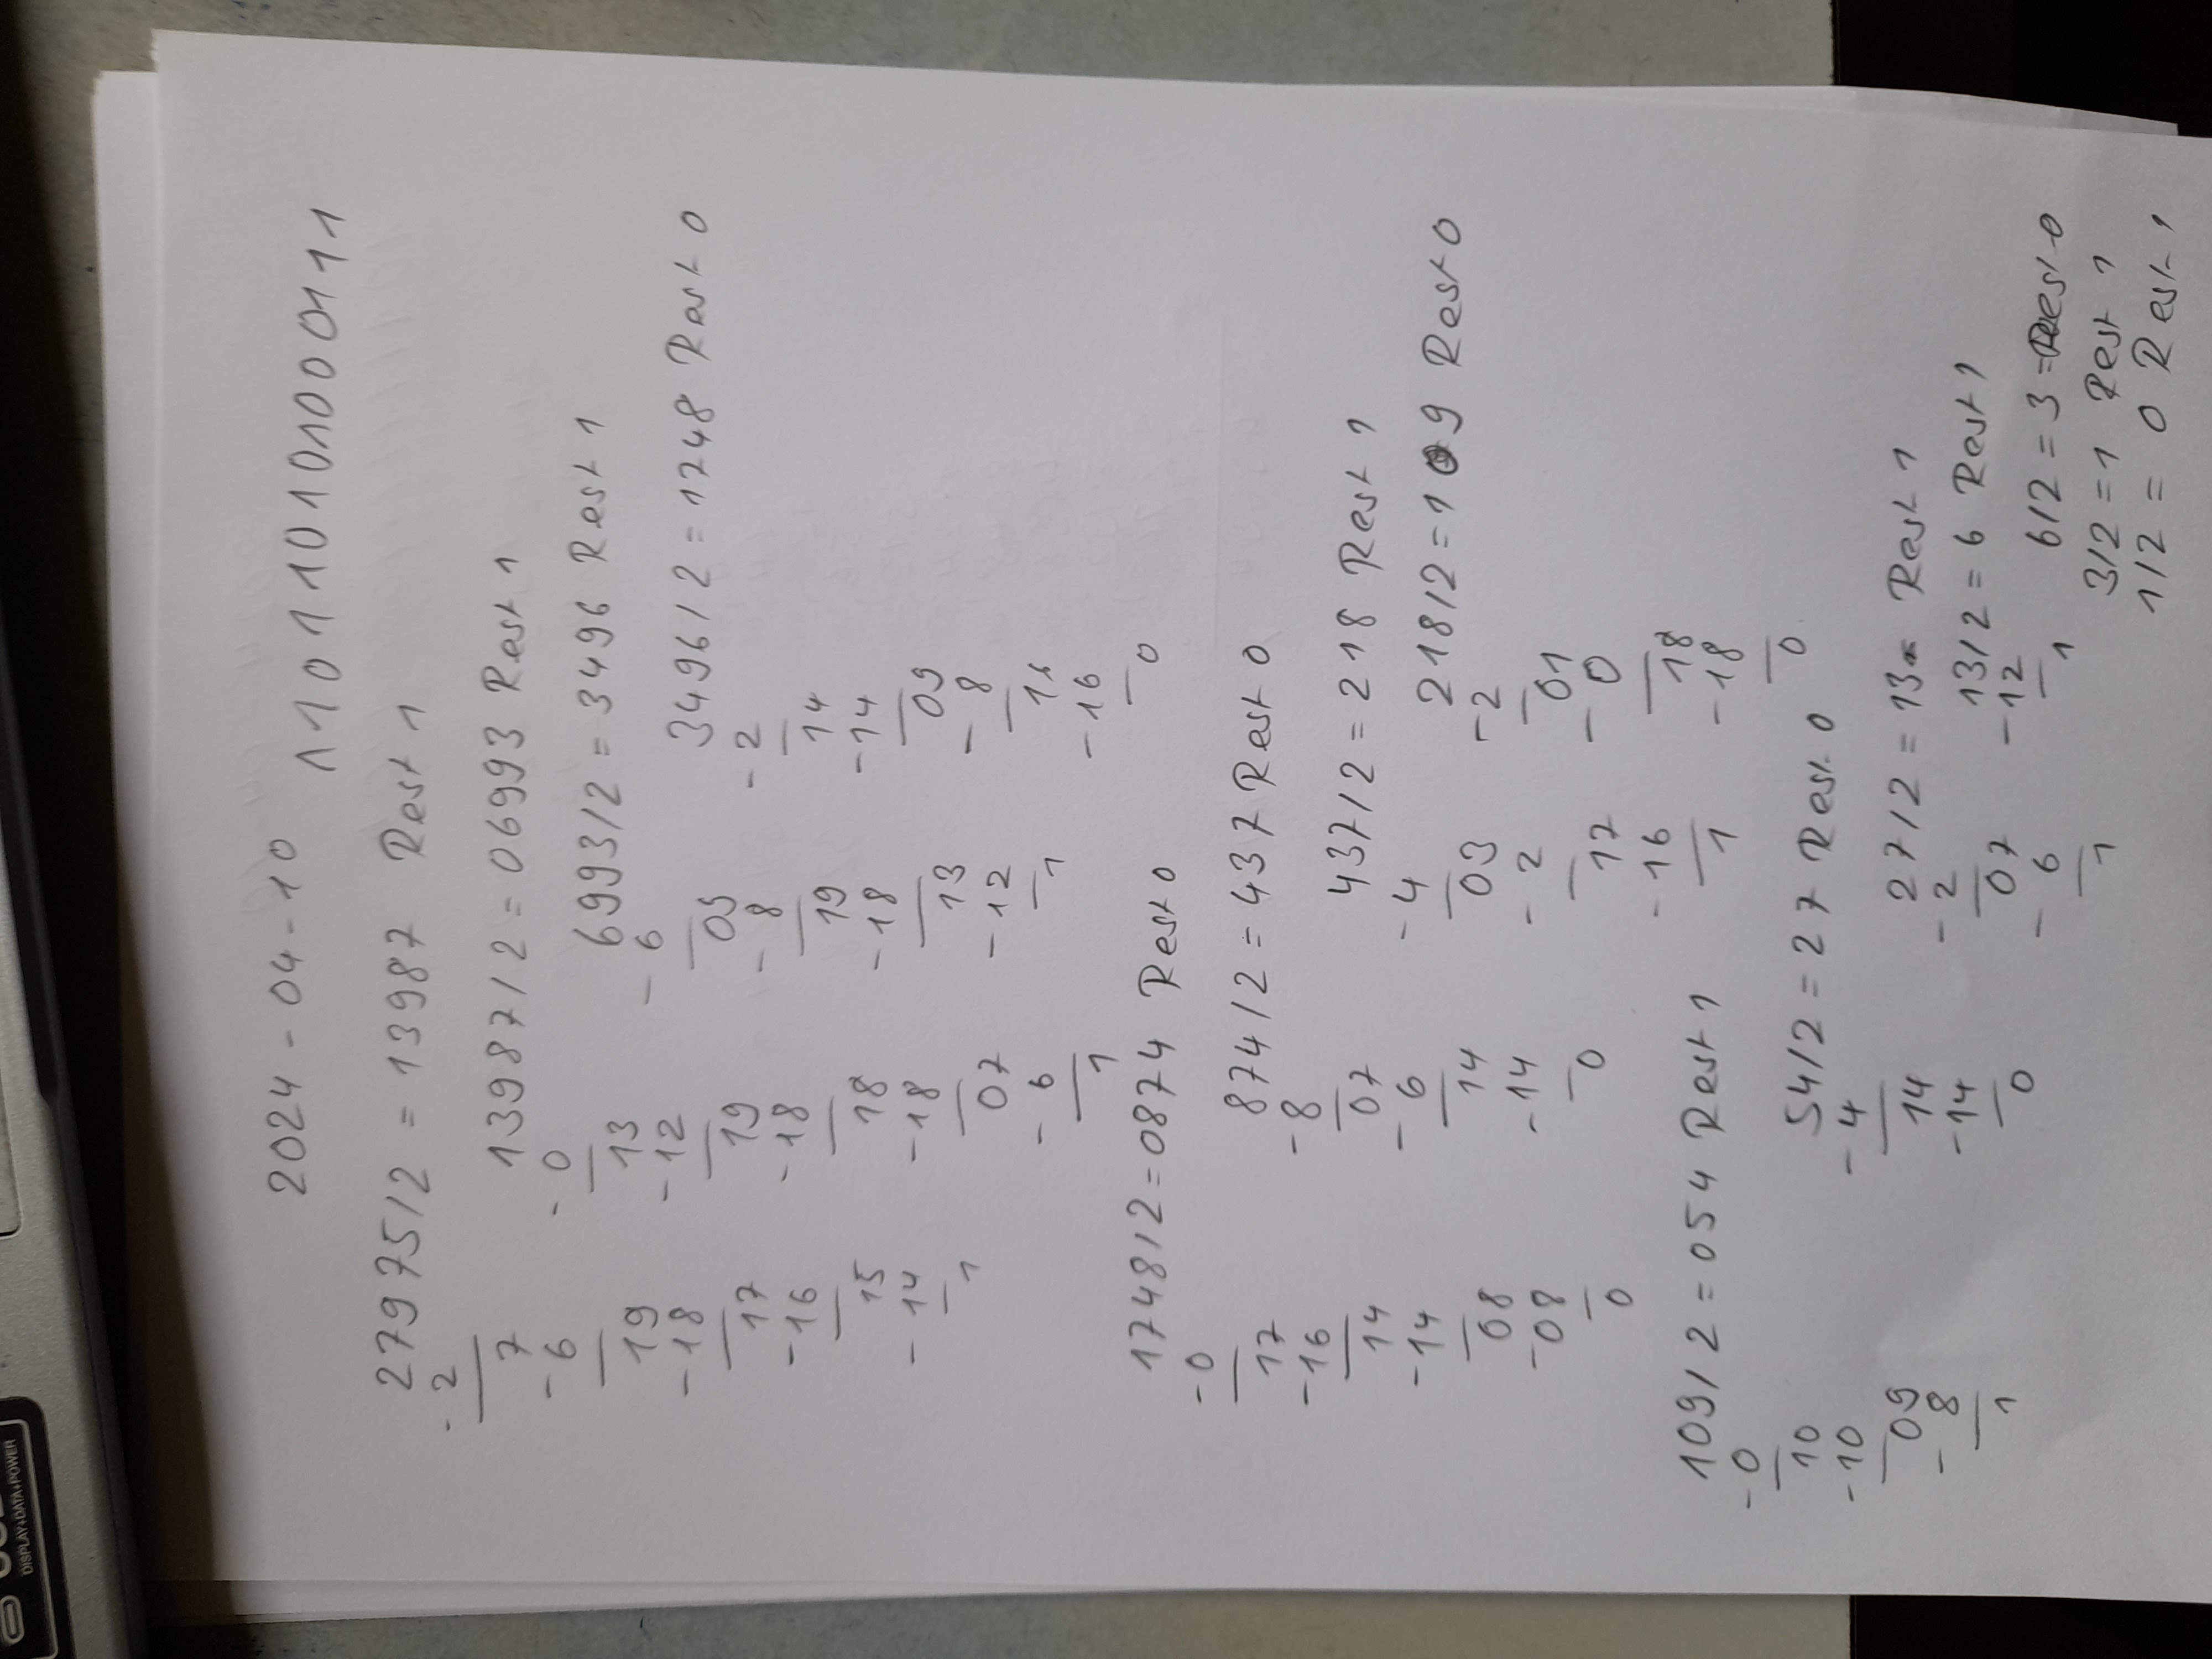 DISPLAY+DATA+POWER
2024-04-10
110110101000111
27975/2 = 13987 Rest 1
- 2
7
- 6
19
- 18
17
- 16
15
- 14
1
13987/2 = 06993 Rest 1
- 0
13
- 12
19
- 18
18
- 18
07
- 6
1
6993/2 = 3496 Rest 1
- 6
09
- 8
19
- 18
13
- 12
1
3496/2 = 1748 Rest 0
- 2
14
- 14
09
- 8
16
- 16
0
1748/2 = 0874 Rest 0
- 0
17
- 16
14
- 14
08
- 08
0
874/2 = 437 Rest 0
- 8
07
- 6
14
- 14
0
437/2 = 218 Rest 1
- 4
03
- 2
17
- 16
1
218/2 = 109 Rest 0
- 2
01
- 0
18
- 18
0
109/2 = 054 Rest 1
- 0
10
- 10
09
- 8
1
54/2 = 27 Rest 0
- 4
14
- 14
0
27/2 = 13 Rest 1
- 2
07
- 6
1
13/2 = 6 Rest 1
- 12
1
6/2 = 3 Rest 0
3/2 = 1 Rest 1
1/2 = 0 Rest 1